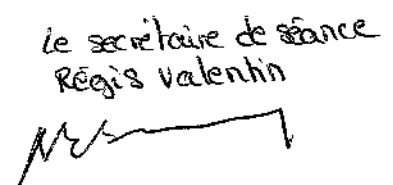 le secrétaire de séance
Régis Valentin